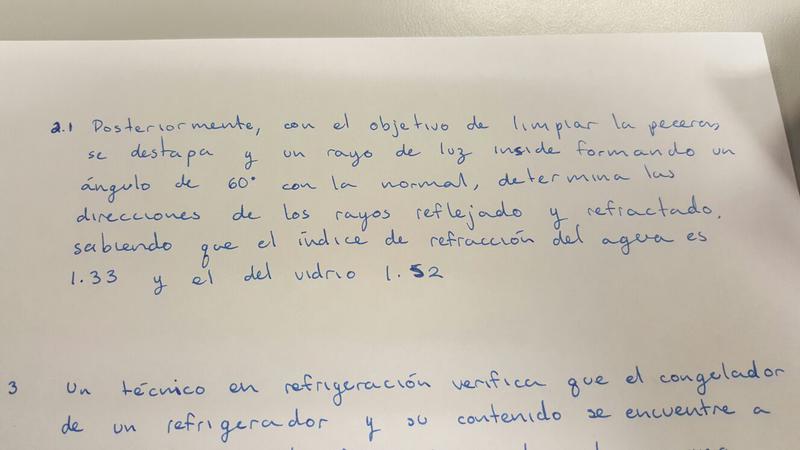 2.1 Posteriormente, con el objetivo de limpiar la pecera,
se destapa y un rayo de luz inside formando un
ángulo de 60° con la normal, determina las
direcciones de los rayos reflejado y refractado,
sabiendo que el índice de refracción del agua es
1.33 y el del vidrio 1.52
3 Un técnico en refrigeración verifica que el congelador
de un refrigerador y su contenido se encuentre a